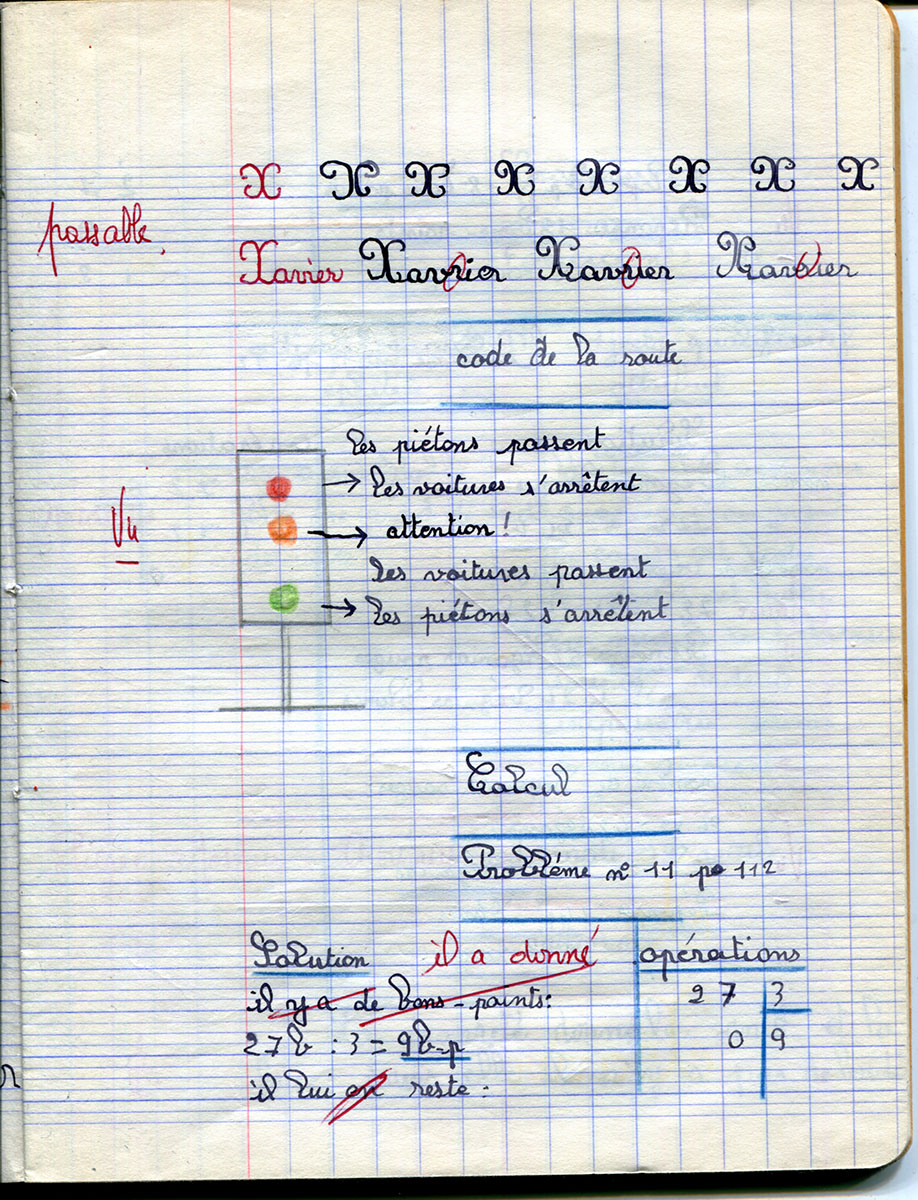 X X X X X X X X
passable.
Xavier Xavrier Xavrier Xavrier
code de la route
les piétons passent
→ les voitures s'arrêtent
Vu
→ attention !
les voitures passent
→ les piétons s'arrêtent
Calcul
Probléme n° 11 p 112
Solution il a donné opérations
il y a de bons-points: 27 3
27b : 3 = 9b-p 0 9
il lui en reste :